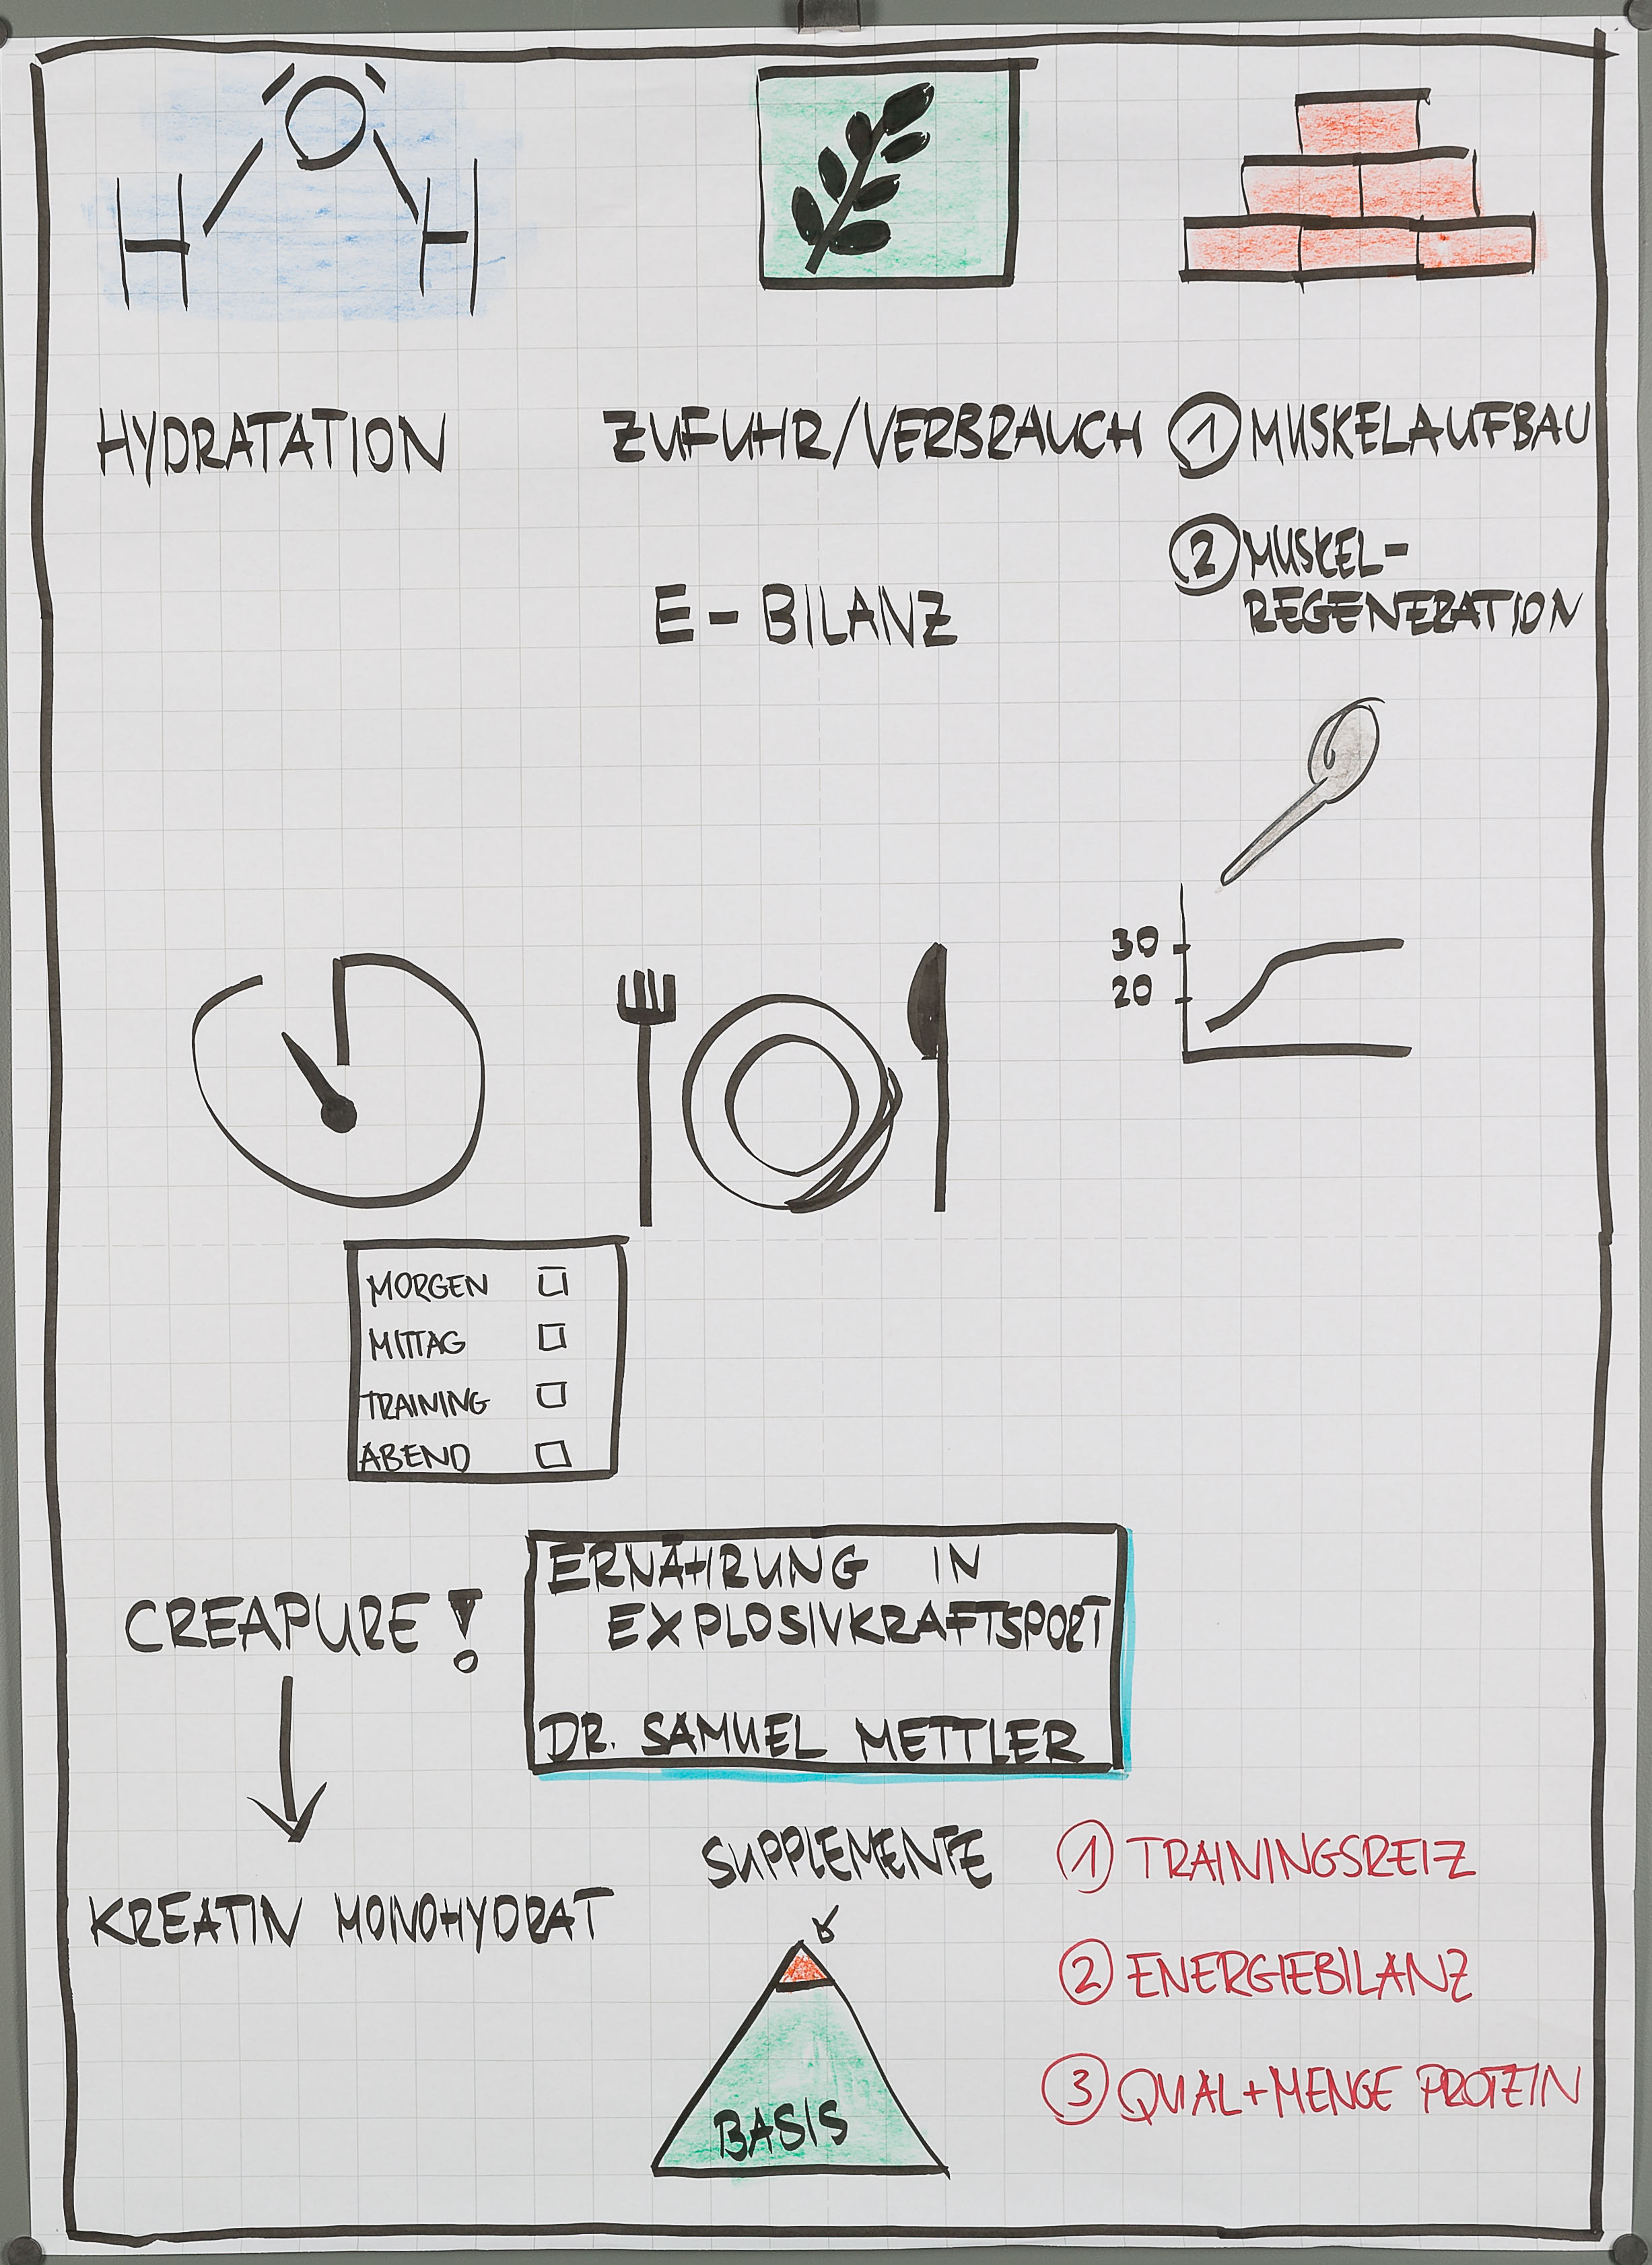 O
H H
HYDRATATION
ZUFUHR/VERBRAUCH
E-BILANZ
1 MUSKELAUFBAU
2 MUSKEL-
REGENERATION
30
20
MORGEN
MITTAG
TRAINING
ABEND
ERNÄHRUNG IN
EXPLOSIVKRAFTSPORT
DR. SAMUEL METTLER
CREAPURE!
KREATIN MONOHYDRAT
SUPPLEMENTE
BASIS
1 TRAININGSREIZ
2 ENERGIEBILANZ
3 QUAL+MENGE PROTEIN